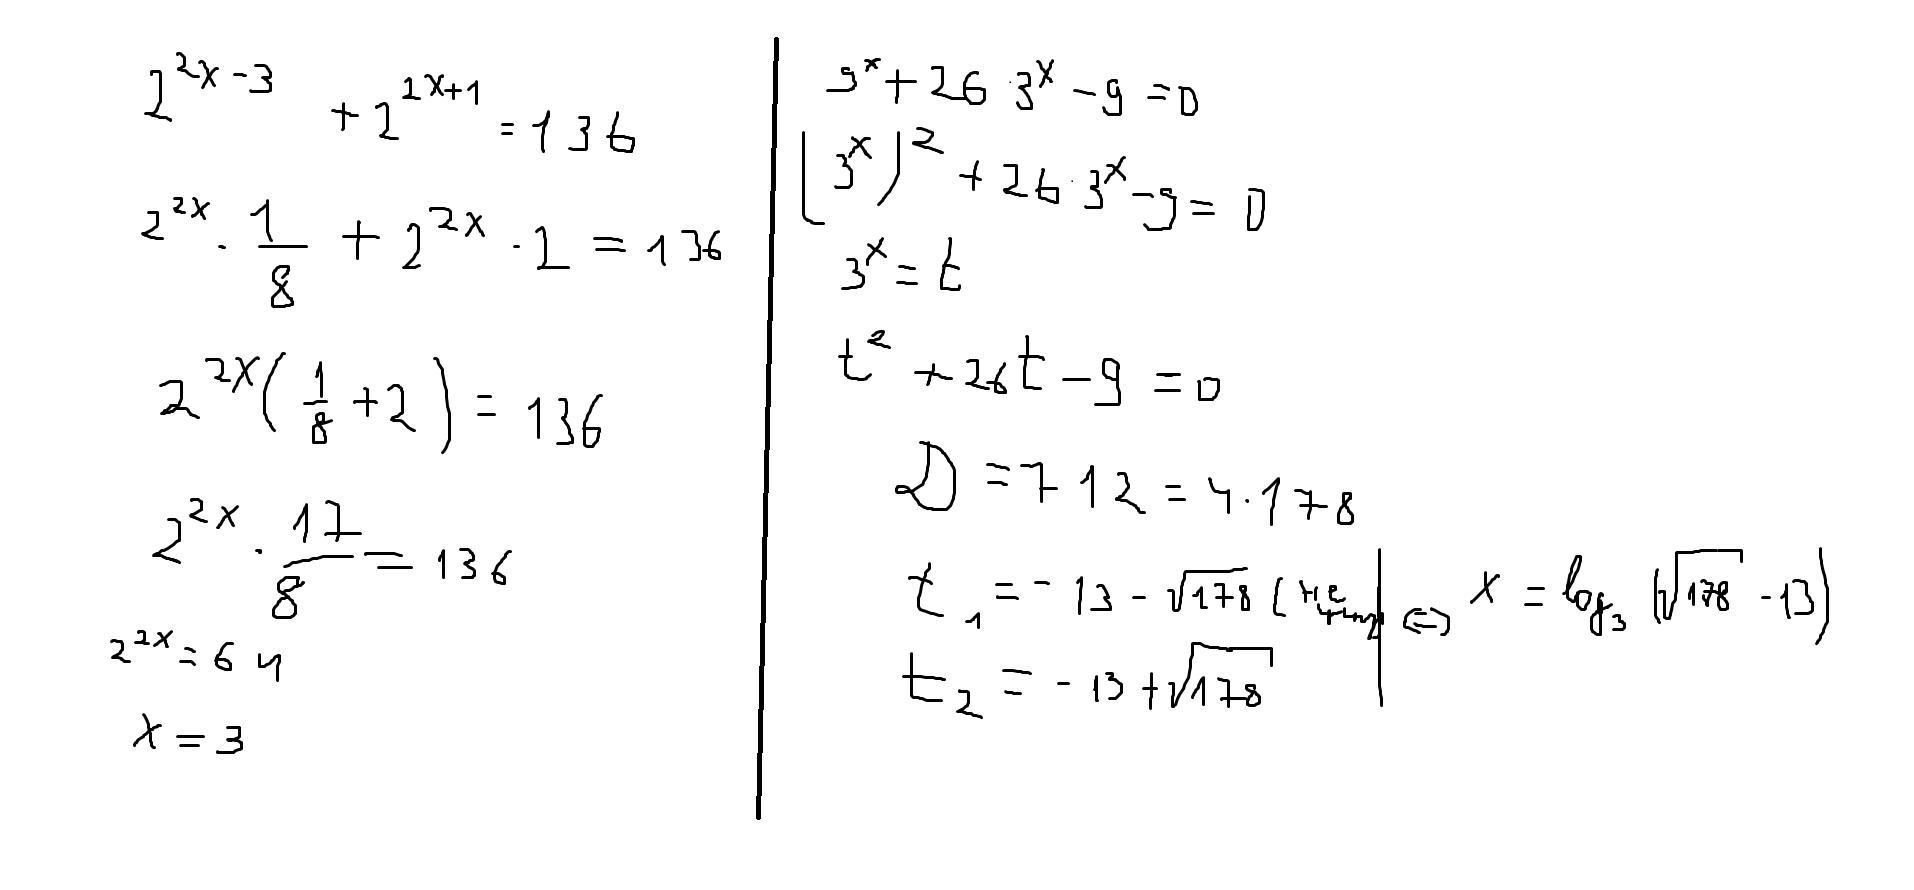 2^{2x-3} + 2^{2x+1} = 136
2^{2x} · 1/8 + 2^{2x} · 2 = 136
2^{2x} (1/8 + 2) = 136
2^{2x} · 17/8 = 136
2^{2x} = 64
x = 3
9^x + 26 · 3^x - 9 = 0
(3^x)^2 + 26 · 3^x - 9 = 0
3^x = t
t^2 + 26t - 9 = 0
D = 712 = 4 · 178
t_1 = -13 - √178 (не
t_2 = -13 + √178
<=> x = log_3 (√178 - 13)